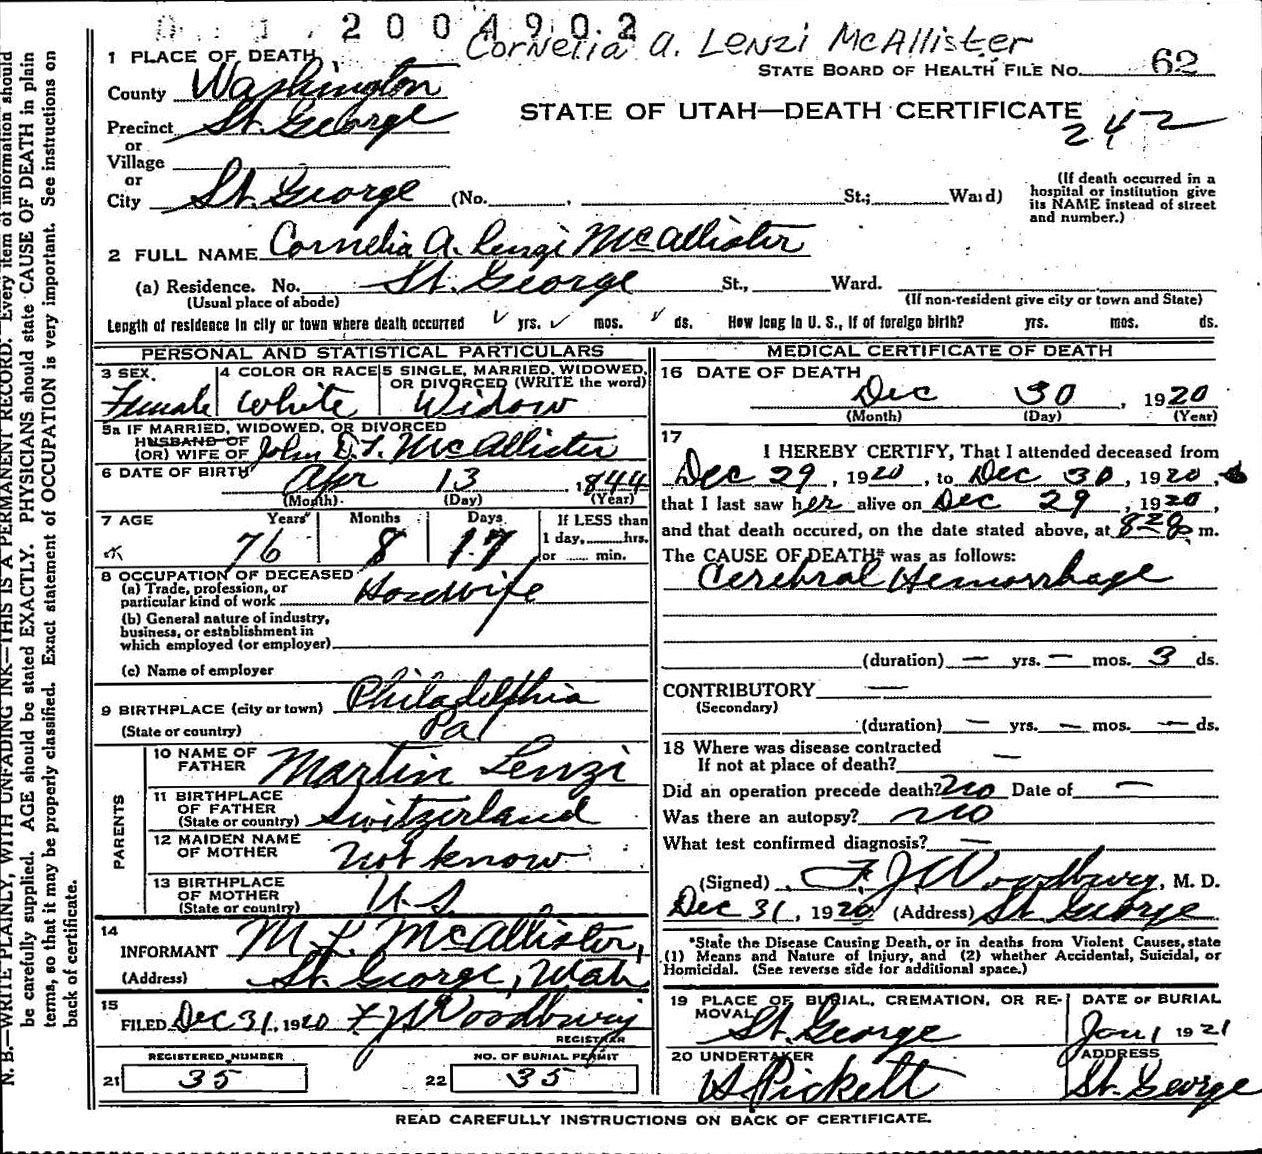 2004902
Cornelia A. Lenzi McAllister
1 PLACE OF DEATH
STATE BOARD OF HEALTH FILE NO. 62
County Washington
STATE OF UTAH—DEATH CERTIFICATE
242
Precinct St. George
or
Village
or
City St. George (No. , St.; Ward)
(If death occurred in a hospital or institution give its NAME instead of street and number.)
2 FULL NAME Cornelia A. Lenzi McAllister
(a) Residence. No. St. George St., Ward.
(Usual place of abode)
(If non-resident give city or town and State)
Length of residence in city or town where death occurred yrs. mos. ds. How long in U. S., if of foreign birth? yrs. mos. ds.
PERSONAL AND STATISTICAL PARTICULARS
3 SEX Female
4 COLOR OR RACE White
5 SINGLE, MARRIED, WIDOWED, OR DIVORCED (WRITE the word) Widow
5a IF MARRIED, WIDOWED, OR DIVORCED
HUSBAND OF
(OR) WIFE OF John D. T. McAllister
6 DATE OF BIRTH Apr 13, 1844
(Month) (Day) (Year)
7 AGE Years Months Days If LESS than
76 8 17 1 day, hrs.
or min.
8 OCCUPATION OF DECEASED
(a) Trade, profession, or
particular kind of work Housewife
(b) General nature of industry,
business, or establishment in
which employed (or employer)
(c) Name of employer
9 BIRTHPLACE (city or town) Philadelphia
(State or country) Pa
PARENTS
10 NAME OF FATHER Martin Lenzi
11 BIRTHPLACE OF FATHER (State or country) Switzerland
12 MAIDEN NAME OF MOTHER Not know
13 BIRTHPLACE OF MOTHER (State or country) U.S.
14
INFORMANT McAllister,
(Address) St. George, Utah
15
FILED Dec 31, 1920 F J Woodbury
REGISTRAR
REGISTERED NUMBER
21 35
NO. OF BURIAL PERMIT
22 35
MEDICAL CERTIFICATE OF DEATH
16 DATE OF DEATH
Dec 30, 1920
(Month) (Day) (Year)
17
I HEREBY CERTIFY, That I attended deceased from
Dec 29, 1920, to Dec 30, 1920,
that I last saw her alive on Dec 29, 1920,
and that death occured, on the date stated above, at m.
The CAUSE OF DEATH* was as follows:
Cerebral Hemorrhage
(duration) — yrs. — mos. 3 ds.
CONTRIBUTORY —
(Secondary)
(duration) — yrs. — mos. — ds.
18 Where was disease contracted
If not at place of death? —
Did an operation precede death? no Date of —
Was there an autopsy? no
What test confirmed diagnosis? —
(Signed) F. J. Woodbury, M. D.
Dec 31, 1920 (Address) St. George
*State the Disease Causing Death, or in deaths from Violent Causes, state
(1) Means and Nature of Injury, and (2) whether Accidental, Suicidal, or
Homicidal. (See reverse side for additional space.)
19 PLACE OF BURIAL, CREMATION, OR REMOVAL St. George
DATE OF BURIAL
Jan 1 1921
20 UNDERTAKER Pickett
ADDRESS St. George
READ CAREFULLY INSTRUCTIONS ON BACK OF CERTIFICATE.
N. B.—WRITE PLAINLY, WITH UNFADING INK—THIS IS A PERMANENT RECORD. Every item of information should
be carefully supplied. AGE should be stated EXACTLY. PHYSICIANS should state CAUSE OF DEATH in plain
terms, so that it may be properly classified. Exact statement of OCCUPATION is very important. See instructions on
back of certificate.